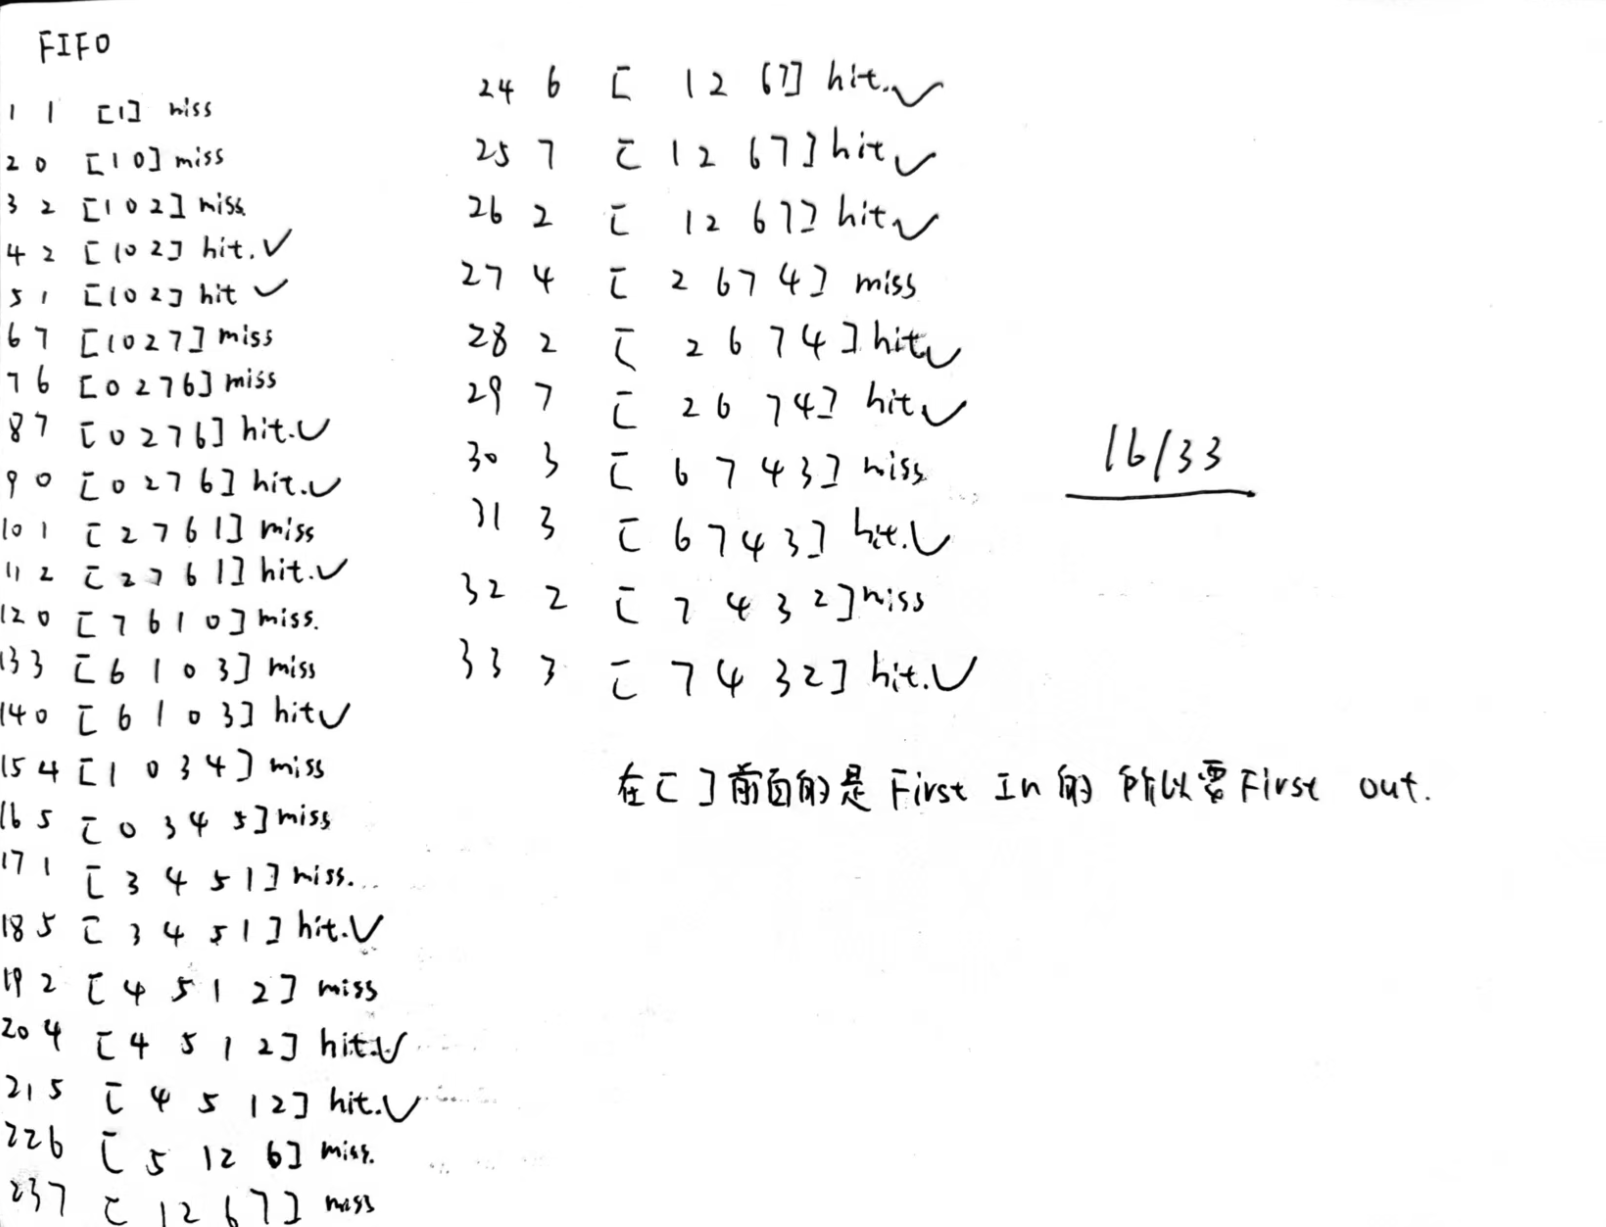 FIFO
1 1 [1] miss
2 0 [1 0] miss
3 2 [1 0 2] miss.
4 2 [1 0 2] hit. ✓
5 1 [1 0 2] hit ✓
6 7 [1 0 2 7] miss
7 6 [0 2 7 6] miss
8 7 [0 2 7 6] hit. ✓
9 0 [0 2 7 6] hit. ✓
10 1 [2 7 6 1] miss
11 2 [2 7 6 1] hit. ✓
12 0 [7 6 1 0] miss.
13 3 [6 1 0 3] miss
14 0 [6 1 0 3] hit ✓
15 4 [1 0 3 4] miss
16 5 [0 3 4 5] miss
17 1 [3 4 5 1] miss.
18 5 [3 4 5 1] hit. ✓
19 2 [4 5 1 2] miss
20 4 [4 5 1 2] hit. ✓
21 5 [4 5 1 2] hit. ✓
22 6 [5 1 2 6] miss.
23 7 [1 2 6 7] miss
24 6 [1 2 6 7] hit. ✓
25 7 [1 2 6 7] hit ✓
26 2 [1 2 6 7] hit ✓
27 4 [2 6 7 4] miss
28 2 [2 6 7 4] hit ✓
29 7 [2 6 7 4] hit ✓
30 3 [6 7 4 3] miss
31 3 [6 7 4 3] hit. ✓
32 2 [7 4 3 2] miss
33 3 [7 4 3 2] hit. ✓
16/33
在[ ]前面的是 First In 的 所以要 First out.